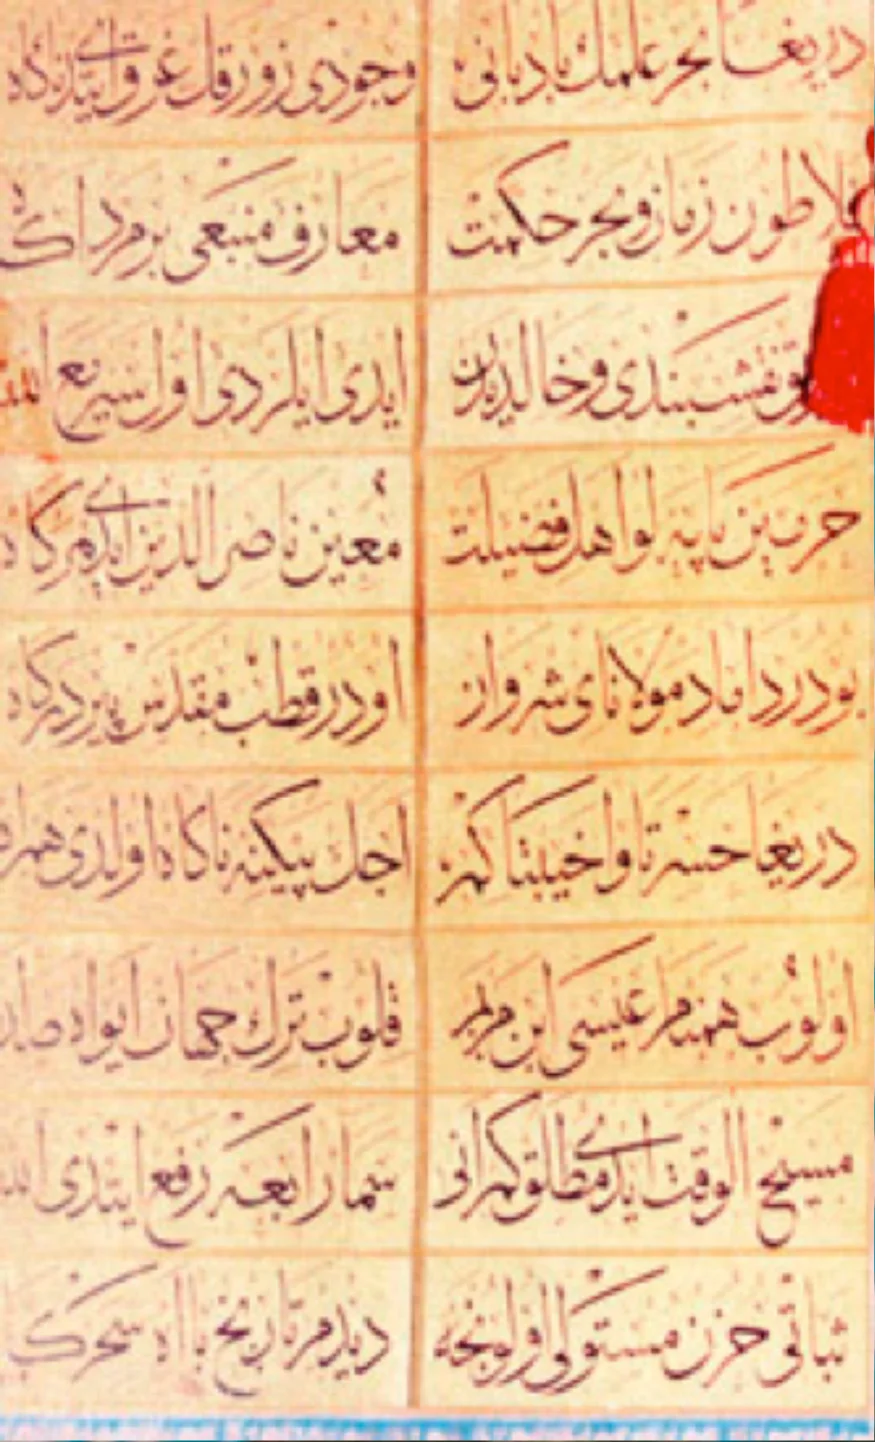 دریغا بحر علمك بادبانی
وجودی زورقك غرق ایتدی ناکاه
فلاطون زمان و بحر حکمت
معارف منبعی بر مرد
نقشبندی و خالدیدن
ایدی ایلردی اول سیر مع الله
حرمین پایه لو اهل فضیلت
معین ناصر الدین ایدی
بودر داماد مولانای شروان
اودر قطب مقدس پیر درکاه
دریغا حسرتا واخیبتا کم
اجل پیکینه ناکاه اولدی همراه
اولوب همنام عیسی ابن مریم
قلوب ترك جهان ایواه
مسیح الوقت ایدی مطلق کم انی
سما رابعه رفع ایتدی الله
ثباتی حزن مستولی اولونجه
دیدم تاریخ با آه سحرك